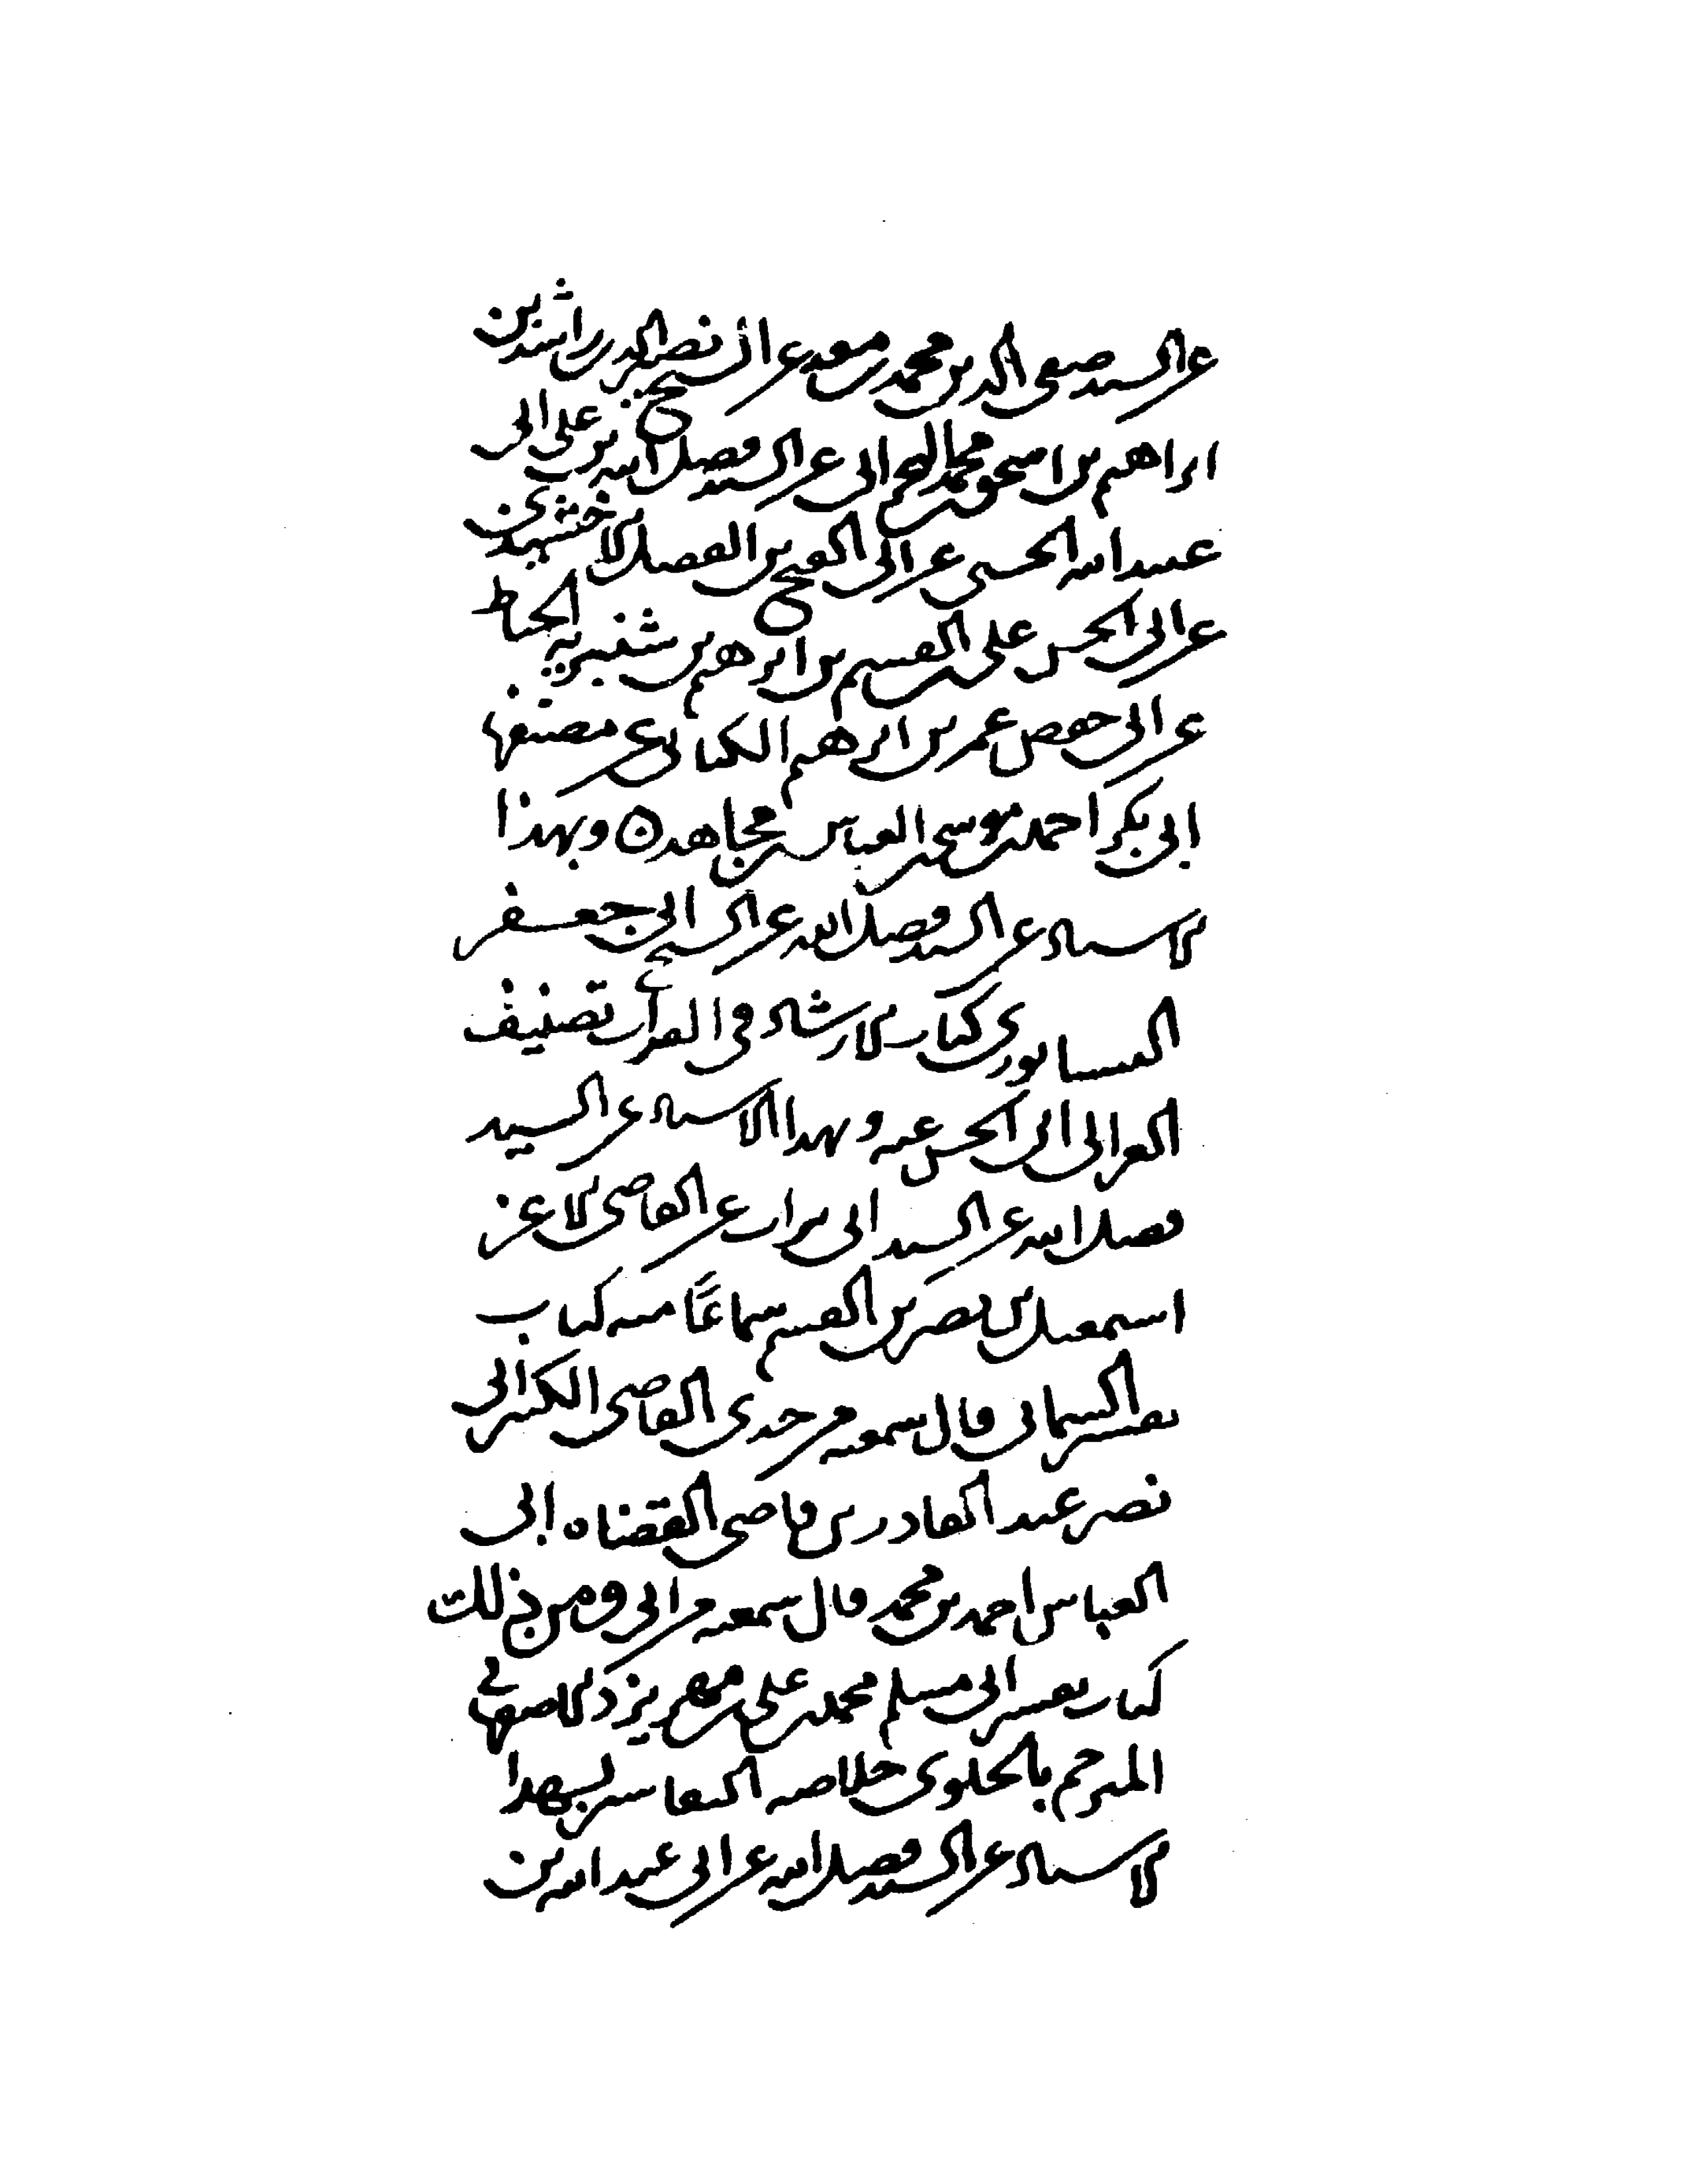 عن السيد صفى الدين محمد بن معد عن الشيخ نصير الدين راشد بن
ابراهيم بن اسحق بن محمد البحرانى عن السيد فضل الله بن على ابى
عبيد الله الحسنى عن ابى الفتح بن الفضل الاخشيدى
عن ابى الحسن على بن القسم بن ابرهيم بن شنبويه الخياط
عن ابى حفص عمر بن ابرهيم الكتانى عن مصنفها
ابى بكر احمد بن موسى بن العباس بن مجاهد ن وبهذا
الاسناد عن السيد فضل الله عن الشيخ ابى جعفر
النيسابورى كتاب الارشاد فى القرآن تصنيف
ابى الحسن عنه وبهذا الاسناد عن السيد
فضل الله عن السيد ابى تراب عن القاضى الاعز
اسمعيل بن نصر بن القسم سماعًا منه كتاب
تفسير السمانى قال سمعته من جدى القاضى الكبير ابى
نصر عبد القادر بن قاضى القضاه ابى
العباس احمد بن محمد قال سمعته من ابى ومن ذلك
كتاب تفسير ابى مسلم محمد بن على بن مهريزد الاصفهانى
المترجم بالحلوى خلاصه التفاسير بهذا
الاسناد عن السيد فضل الله عن ابى عبد الله بن